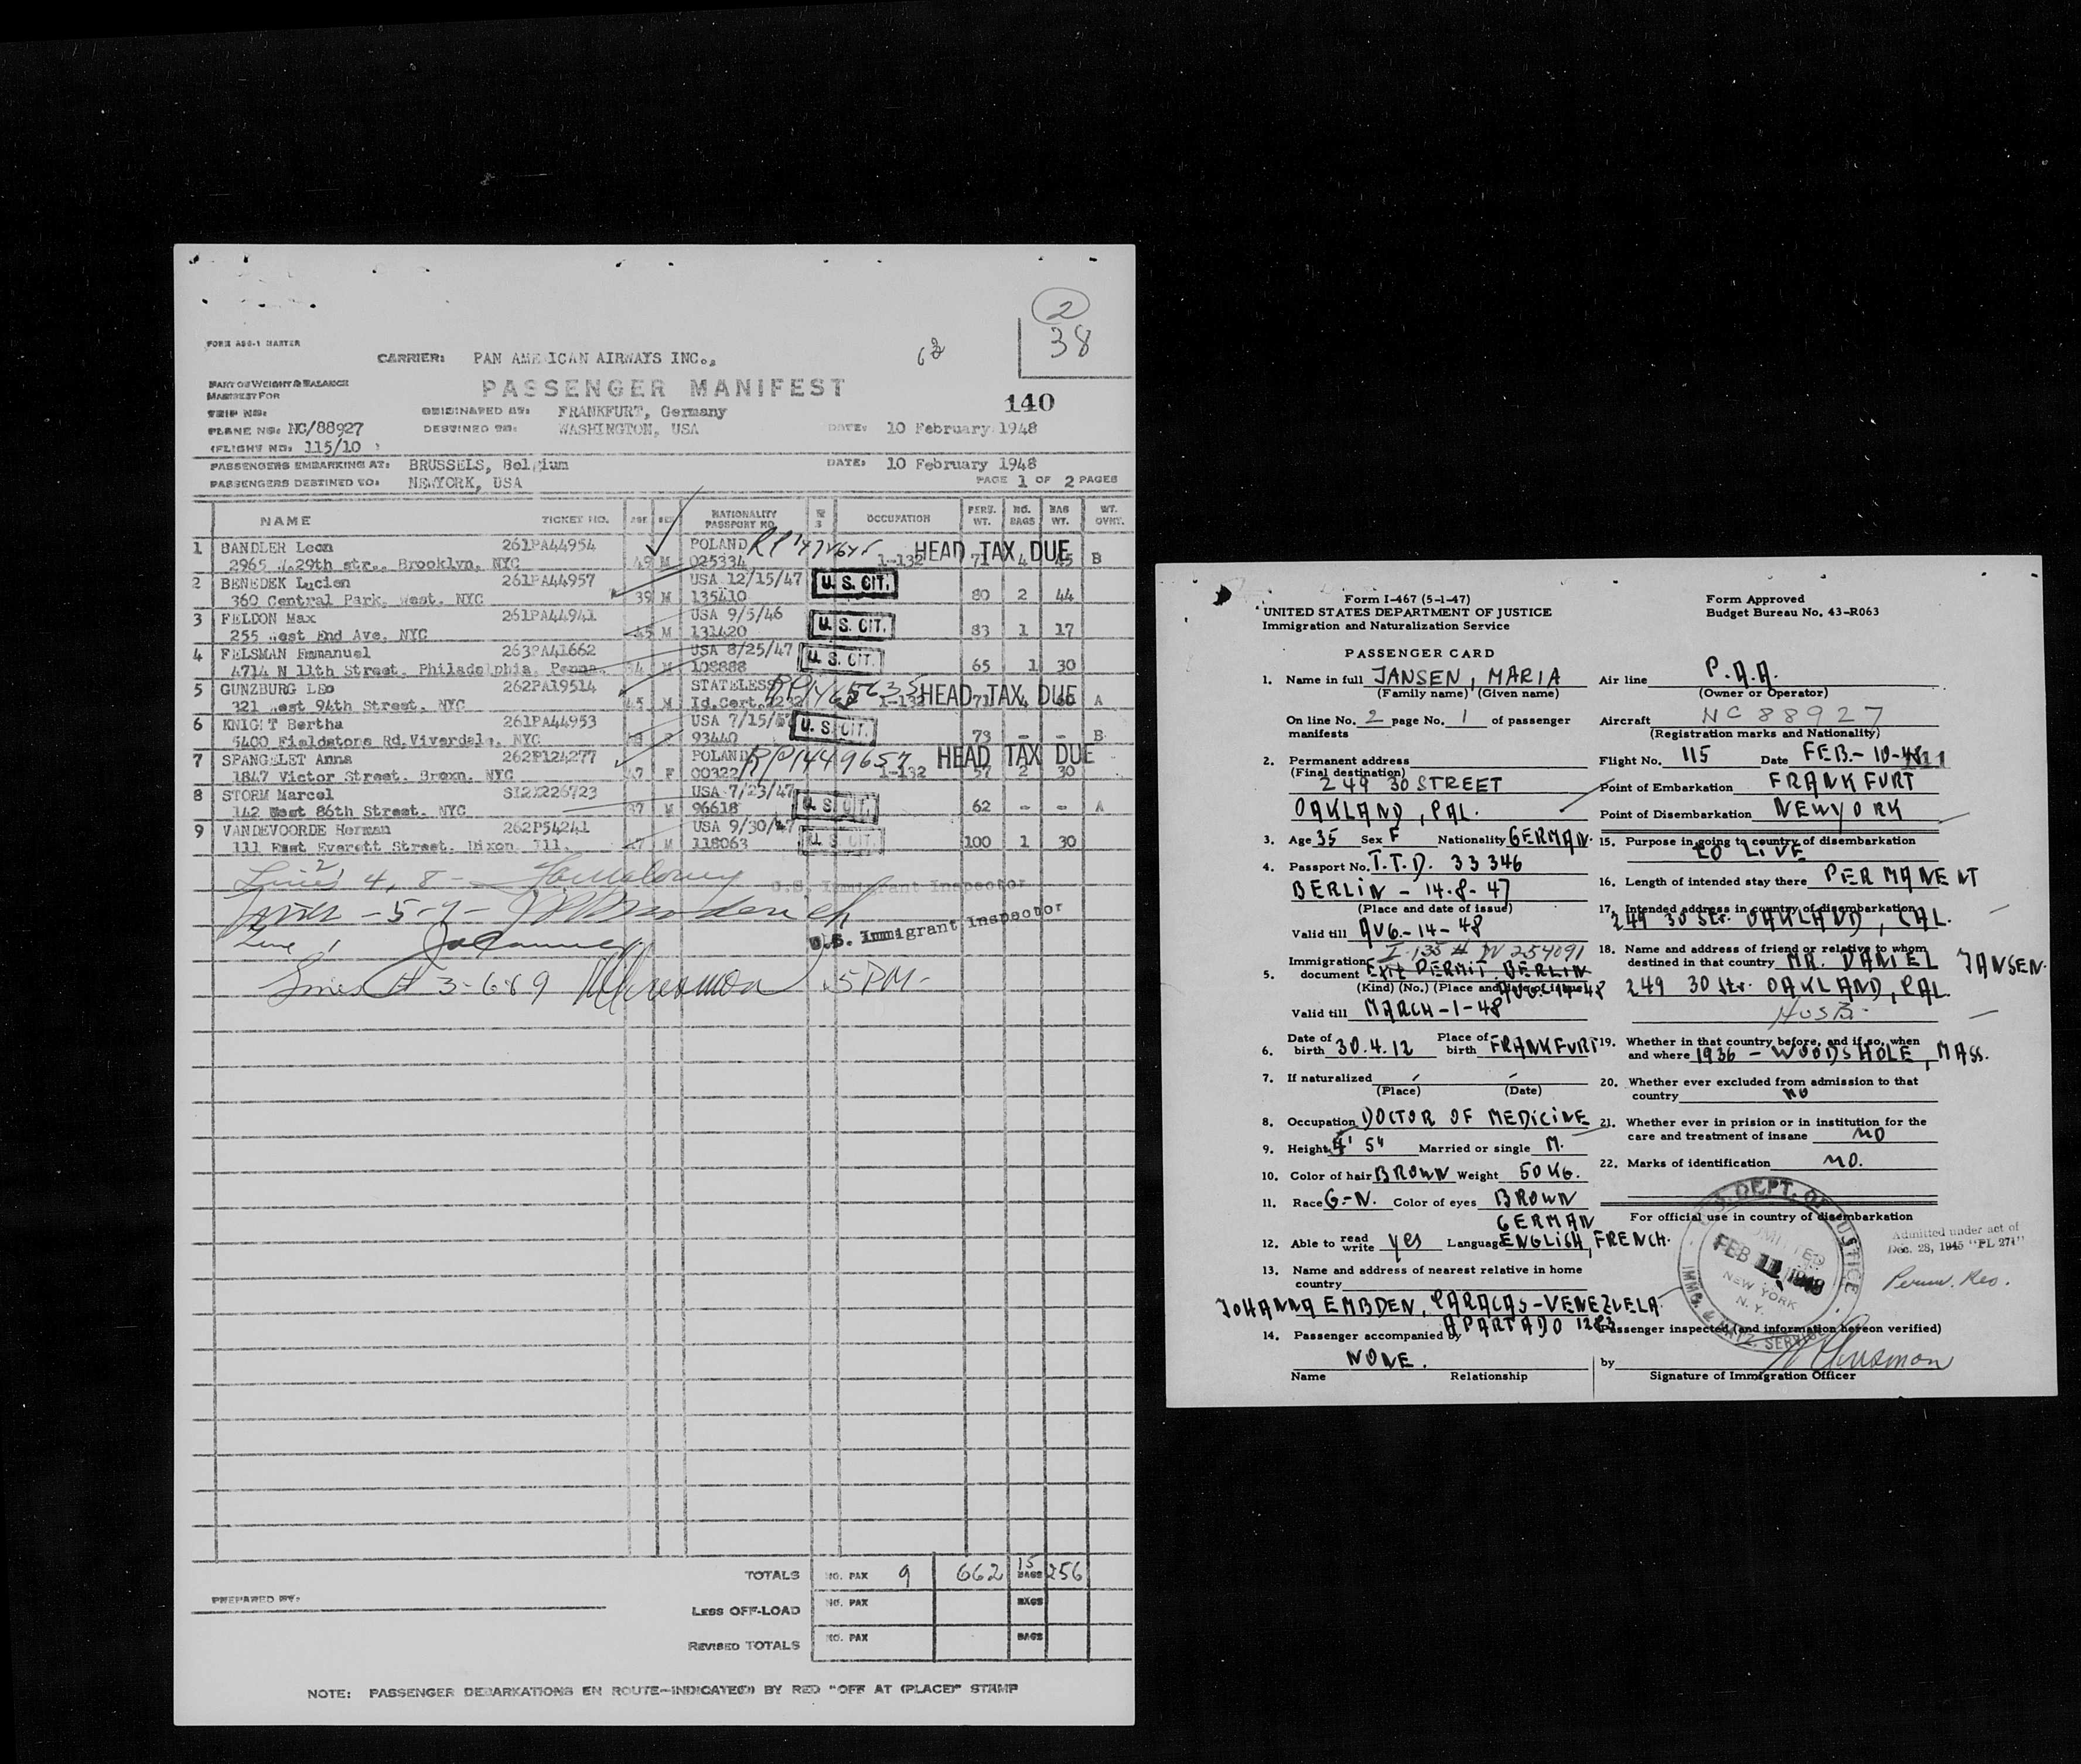 2
38
FORM ASG-1 MASTER
CARRIER: PAN AMERICAN AIRWAYS INC.,
PART OF WEIGHT & BALANCE
MANIFEST FOR
PASSENGER MANIFEST
140
TRIP NO:
ORIGINATED AT: FRANKFURT, Germany
PLANE NO: NC/88927
DESTINED TO: WASHINGTON, USA
DATE: 10 February 1948
(FLIGHT NO: 115/10
PASSENGERS EMBARKING AT: BRUSSELS, Belgium
DATE: 10 February 1948
PASSENGERS DESTINED TO: NEWYORK, USA
PAGE 1 OF 2 PAGES
NAME TICKET NO. AGE SEX NATIONALITY PASSPORT NO. OCCUPATION PERS. WT. NO. BAGS BAG WT. WT. OVNT.
1 BANDLER Leon 261PA44954 POLAND HEAD TAX DUE
2965 W.29th str., Brooklyn, NYC 49 M 025334 1-132 71 4 45 B
2 BENEDEK Lucien 261PA44957 USA 12/15/47 U. S. CIT.
360 Central Park, West. NYC 39 M 135410 80 2 44
3 FELDON Max 261PA44941 USA 9/5/46 U. S. CIT.
255 West End Ave, NYC 45 M 131420 83 1 17
4 FELSMAN Emmanuel 263PA41662 USA 8/25/47 U. S. CIT.
4714 N 11th Street, Philadelphia, Penna. 54 M 108888 65 1 30
5 GUNZBURG Leo 262PA19514 STATELESS HEAD TAX DUE
321 West 94th Street. NYC 45 M Id.Cert. 1-132 71 4 A
6 KNIGHT Bertha 261PA44953 USA 7/15/47 U. S. CIT.
5400 Fieldstons Rd.Viverdale, NYC F 93440 73 - - B
7 SPANGELET Anna 262P124277 POLAND RP1449657 HEAD TAX DUE
1847 Victor Street. Broxn. NYC 47 F 00322 1-132 57 2 30
8 STORM Marcel S12X226723 USA 7/23/47 U. S. CIT.
142 West 86th Street. NYC 37 M 96618 62 - - A
9 VANDEVOORDE Herman 262P54241 USA 9/30/47 U. S. CIT.
111 East Everett Street. Dixon, Ill. 47 M 118063 100 1 30
Lines 2, 4, 8 -
U.S. Immigrant Inspector
- 5-7 -
U.S. Immigrant Inspector
Line 1
Lines # 3-6&9 5PM-
TOTALS NO. PAX 9 662 15 BAGS 256
PREPARED BY:
LESS OFF-LOAD NO. PAX BAGS
REVISED TOTALS NO. PAX BAGS
NOTE: PASSENGER DEBARKATIONS EN ROUTE-INDICATE(D) BY RED "OFF AT (PLACE)" STAMP
Form I-467 (5-1-47)
UNITED STATES DEPARTMENT OF JUSTICE
Immigration and Naturalization Service
Form Approved
Budget Bureau No. 43-R063
PASSENGER CARD
1. Name in full JANSEN, MARIA
(Family name) (Given name)
On line No. 2 page No. 1 of passenger
manifests
2. Permanent address
(Final destination)
249 30 STREET
OAKLAND, CAL.
3. Age 35 Sex F Nationality GERMAN.
4. Passport No. T.T.D. 33346
BERLIN - 14-8-47
(Place and date of issue)
Valid till AUG.-14-48
I-135 # IV 254091
5. Immigration document EXIT PERMIT, BERLIN
(Kind) (No.) (Place and date of issue)
Valid till MARCH-1-48
6. Date of birth 30.4.12 Place of birth FRANKFURT
7. If naturalized
(Place) (Date)
8. Occupation DOCTOR OF MEDICINE
9. Height 4' 5" Married or single M.
10. Color of hair BROWN Weight 50 KG.
11. Race G-N. Color of eyes BROWN
GERMAN
12. Able to read write yes Language ENGLISH, FRENCH.
13. Name and address of nearest relative in home
country
JOHANNA EMBDEN, CARACAS-VENEZUELA
APARTADO
14. Passenger accompanied by
NONE.
Name Relationship
Air line P.A.A.
(Owner or Operator)
Aircraft NC 88927
(Registration marks and Nationality)
Flight No. 115 Date FEB.-10-48
Point of Embarkation FRANKFURT
Point of Disembarkation NEWYORK
15. Purpose in going to country of disembarkation
TO LIVE
16. Length of intended stay there PERMANENT
17. Intended address in country of disembarkation
249 30 Str. OAKLAND, CAL.
18. Name and address of friend or relative to whom
destined in that country MR. DANIEL JANSEN.
249 30 Str. OAKLAND, CAL.
HUSB.
19. Whether in that country before, and if so, when
and where 1936 - WOODSHOLE, MASS.
20. Whether ever excluded from admission to that
country NO
21. Whether ever in prision or in institution for the
care and treatment of insane NO
22. Marks of identification NO.
For official use in country of disembarkation
U.S. DEPT. OF JUSTICE
ADMITTED
FEB 11 1948
NEW YORK
N. Y.
IMMG. & NATZ. SERVICE
Admitted under act of
Dec. 28, 1945 "PL 271"
Perm. Res.
Passenger inspected (and information hereon verified)
by
Signature of Immigration Officer